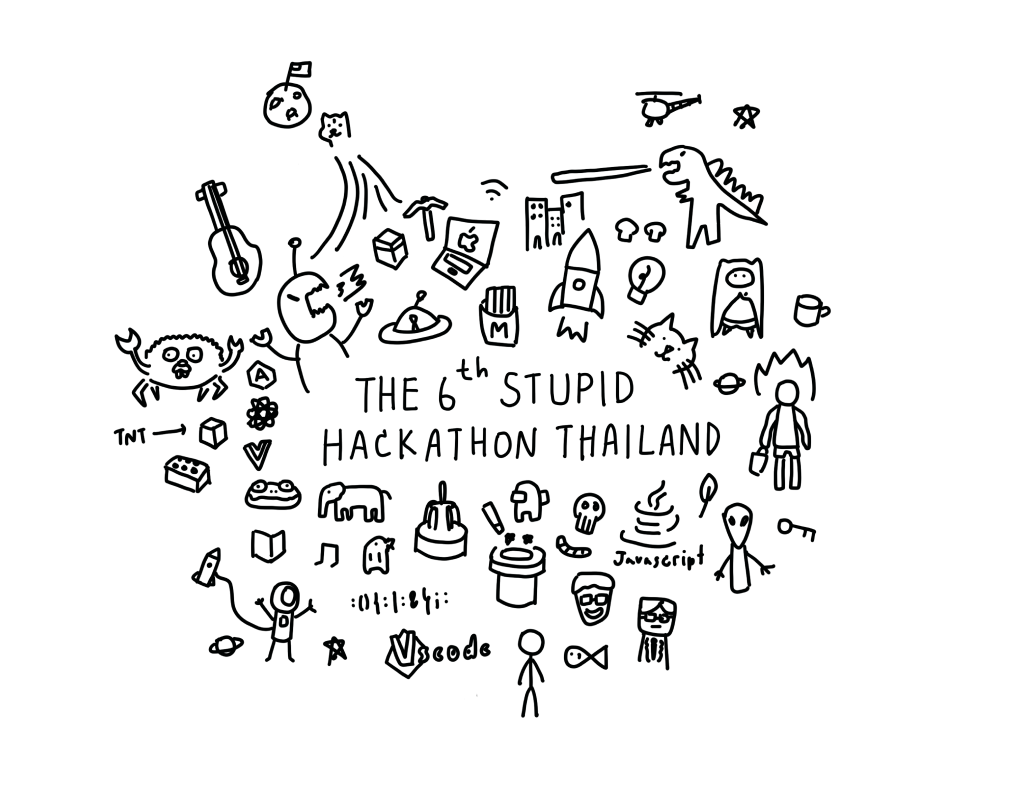 M
THE 6th STUPID
HACKATHON THAILAND
A
TNT
Javascript
Vscode